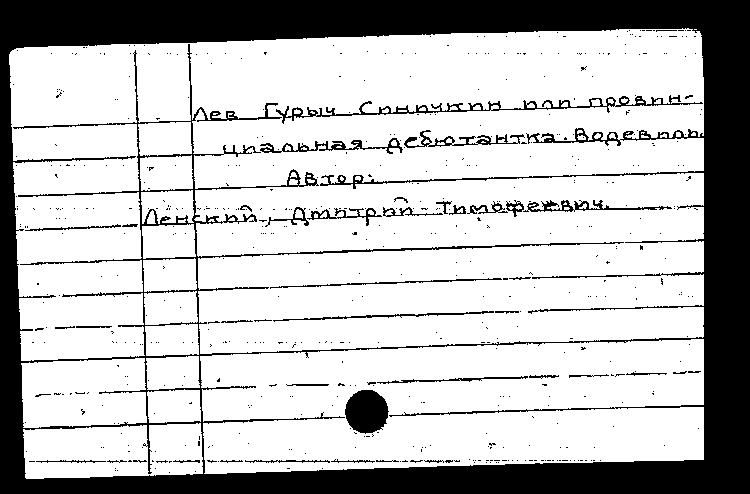 Лев Гурыч Синичкин или провин-
циальная дебютантка. Водевиль.
Автор:
Ленский, Дмитрий Тимофеевич.